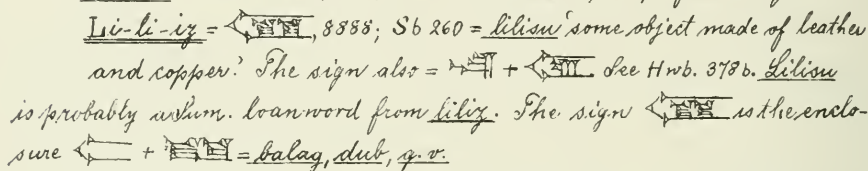 Li-li-iz = , 8888; Sb 260 = lilisu 'some object made of leather
and copper'. The sign also = + . See Hwb. 378b. Lilisu
is probably a Sum. loanword from liliz. The sign is the enclo-
sure + = balag, dub, q. v.